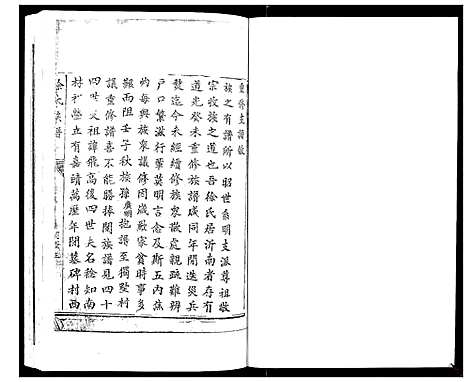 重修支譜敘
族之有譜所以昭世系明支派尊祖敬
宗收族之道也吾徐氏居沂南者存有
道光癸未重修族譜咸同年間迭災兵
燹迄今未經續修族衆散處親疏難辨
戶口繁滋行輩莫明言念及斯五內焦
灼每與族衆議修同咸厥家貧時事多
艱而阻壬子秋族孫廣明抱譜至獨墅村
議重修譜喜不能勝捧閱族譜見四十
四世義祖諱飛高後四世夫名徐知南
村利弊立有嘉靖萬歷年間墓碑村西
徐氏族譜